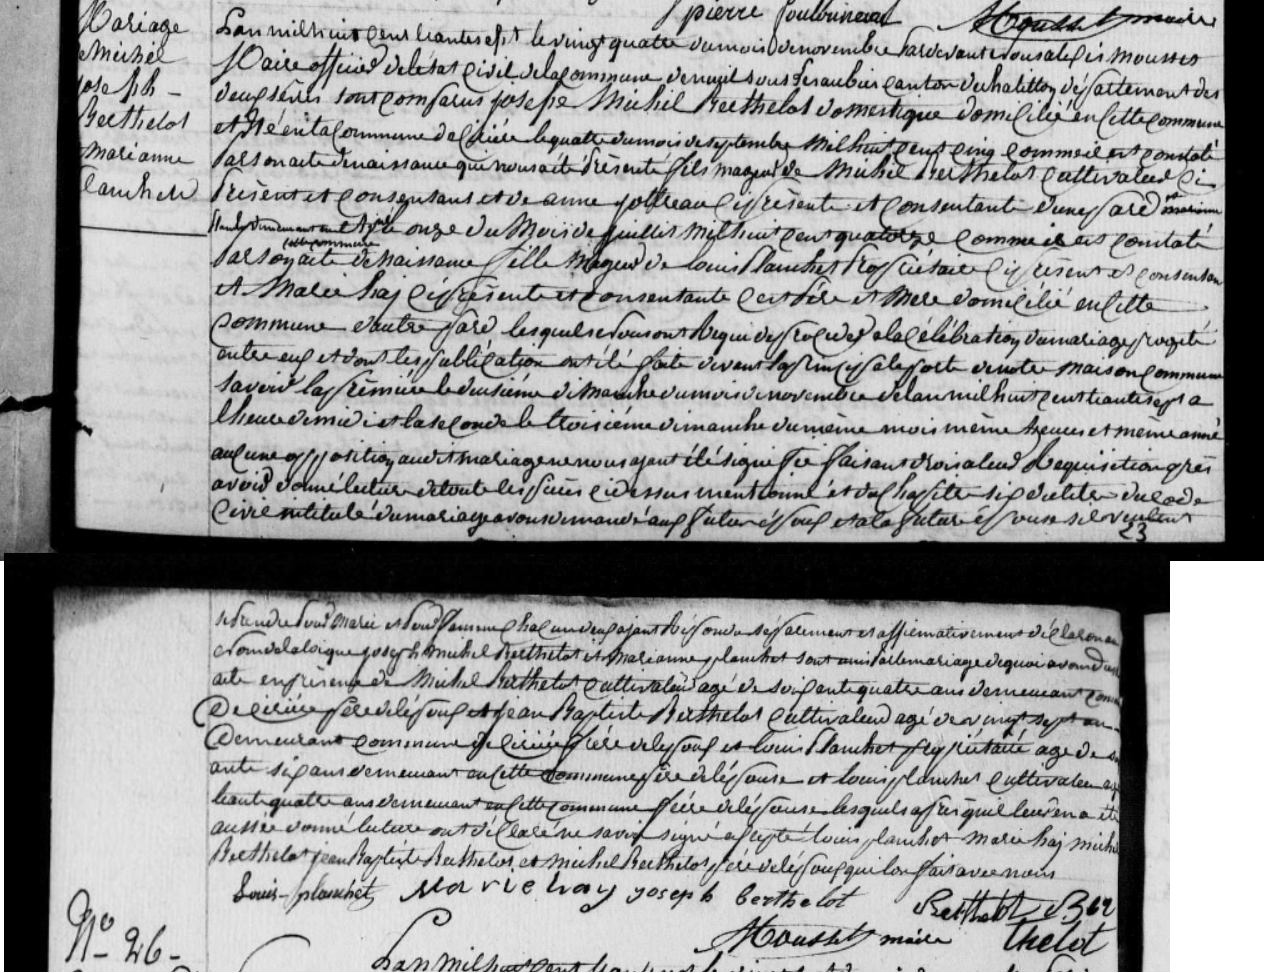 pierre
Mousset maire
Mariage
Michel
joseph -
Berthelot
marianne
Planchet
Lan mil huit cent trante sept le vingt quatre du mois de novembre par devant nous alexis Mousset
Maire officier de letat civil de la commune de nueil sous les aubiers canton de chatillon département des
deux sèvres sont comparus joseph Michel Berthelot domestique domicilié en cette commune
et né en la commune de cirière le quatre du mois de septembre mil huit cent cinq comme il est constaté
par son acte de naissance qui nous a été présenté fils majeur de Michel Berthelot cultivateur ci
présent et consentant et de anne ci présente et consentante d'une part et marianne
Planchet demeurant et née le onze du Mois de juillet mil huit cent quatorze comme il est constaté
cette commune
par son acte de naissance fille majeur de louis Planchet propriétaire ci présent et consentant
et Marie hay ci présente et consentante ces père et Mere domicilié en cette
commune d'autre part lesquels nous ont requi de procéder a la célébration du mariage projeté
entre eux et dont les publication ont été faite devant la principale porte de notre maison commune
savoir la première le deuxième dimanche du mois de novembre de lan mil huit cent trante sept a
lheure de midi et la seconde le troisième dimanche du même mois même heure et même année
aucune opposition audit mariage ne nous ayant été signifié faisant droit a leur requisition après
avoir donné lecture de toute les pièces ci dessus mentionné et du chapitre six du titre du code
civil intitulé du mariage avons demandé au futur époux et a la future épouse sil veulent
23
se prendre pour marie et pour famme chacun deux ayant répondu séparement et affirmativement déclarons au
nom de la loi que joseph michel Berthelot et marianne planchet sont uni par le mariage de quoi avons
acte en présence de Michel Berthelot cultivateur agé de soixante quatre ans demeurant
De cirière père de lépoux et jean Baptiste Berthelot cultivateur agé de vingt sept an
Demeurant commune de cirière frère de lepoux et louis Planchet propriétaire age de
ante six ans demeurant en cette commune père de lépouse et louis planchet cultivateur
trante quatre ans demeurant en cette commune frère de lépouse lesquels après quil leur en a été
aussée donné lecture ont déclaré ne savoir signé excepté louis planchet marie hay michel
Berthelot jean Baptiste Berthelot et michel Berthelot père de lépoux qui lon fait avec nous
Louis planchet Marie hay joseph berthelot
Berthelot
Mousset maire thelot
Nº 26 -